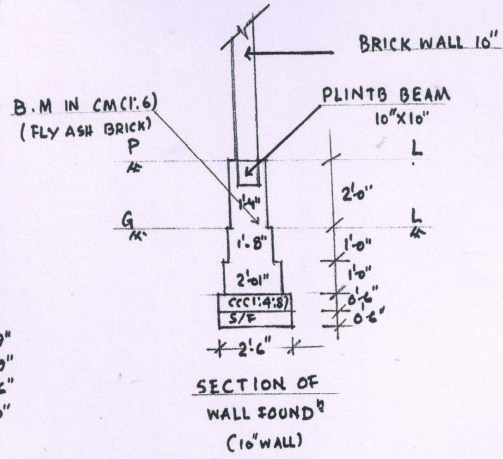 BRICK WALL 10"
B.M IN CM(1:6)
(FLY ASH BRICK)
PLINTB BEAM
10"X10"
P
L
1'.4"
2'.0"
G
L
1'.8"
1'.0"
2'.01"
1'.0"
CC(1:4:8)
0'.6"
S/F
0'.6"
2'.6"
SECTION OF
WALL FOUNDⁿ
(10"WALL)